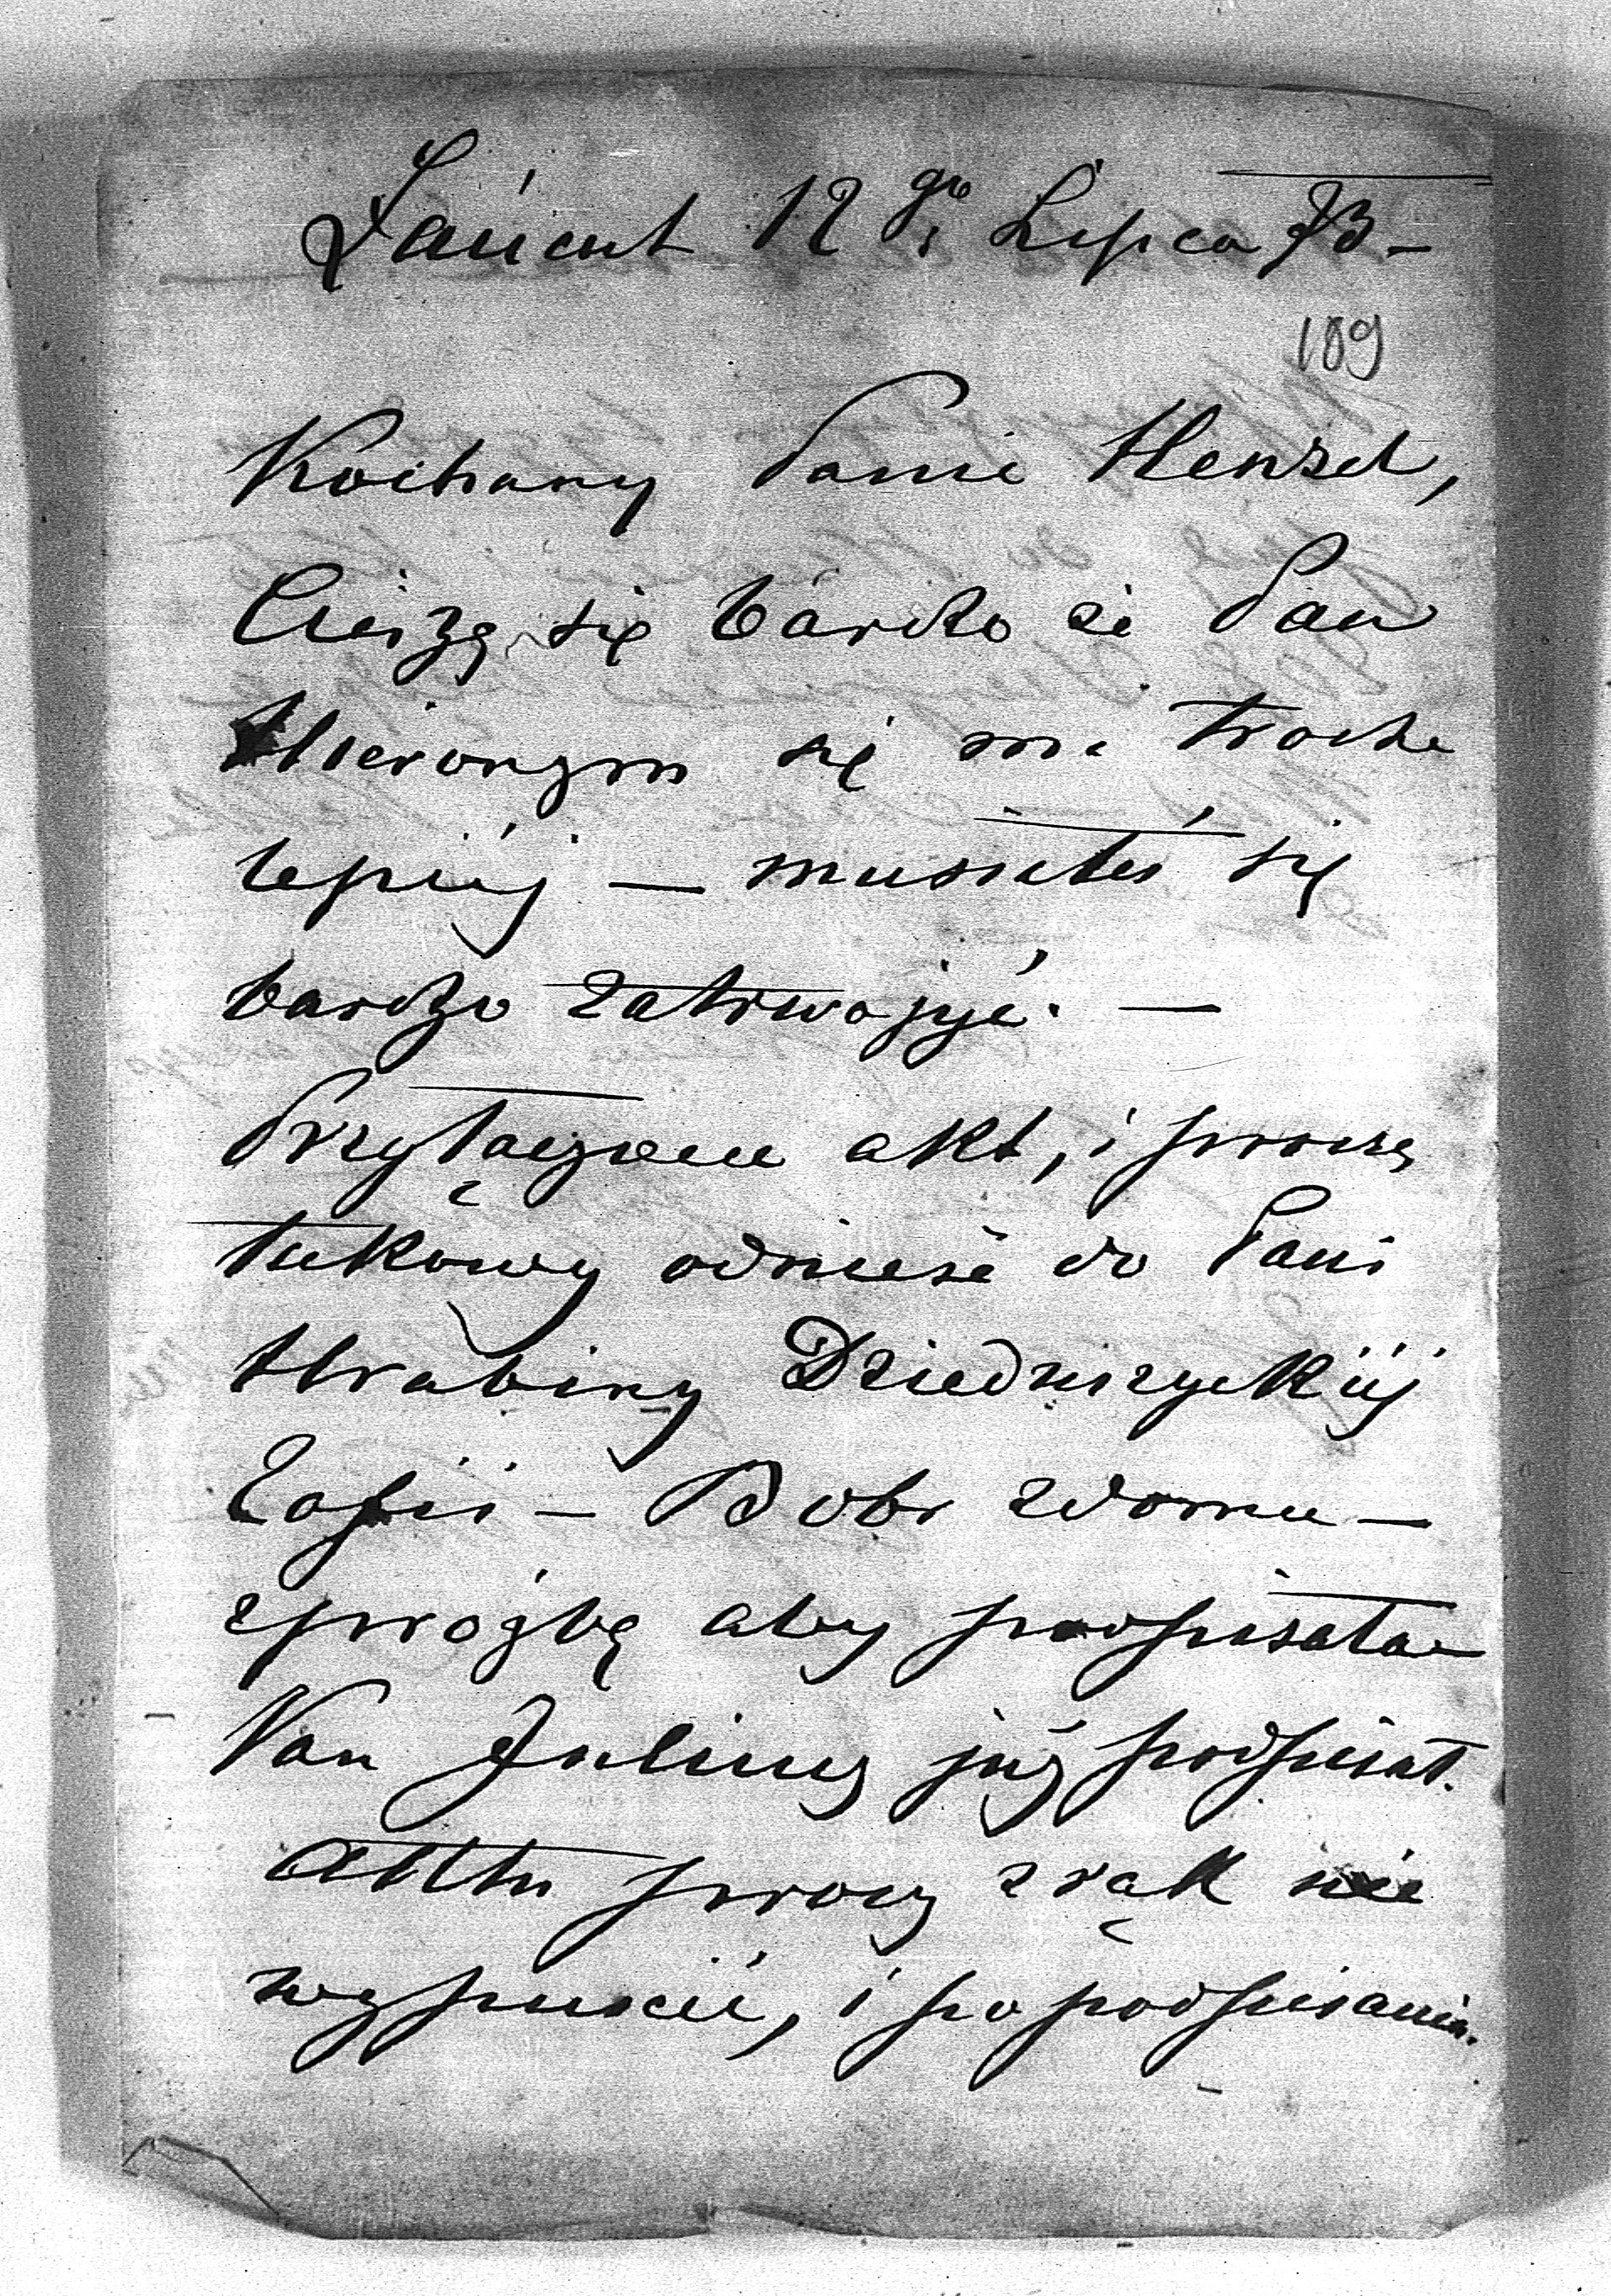 Łańcut 12go Lipca 73 –
189
Kochany Panie Henzel,
Cieszę się bardzo że Pan
Hieronym się ma troche
lepiéj — musiałeś się
bardzo zatrwożyć. —
Przyłączam akt, i proszę
takowy odnieść do Pani
Hrabiny Dzieduszyckiéj
Zofii – Bobr zdomu –
zprożbą aby podpisała –
Pan Juliusz już podpisał.
Aktu proszę zrąk nie
wypuścić, i po podpisaniu